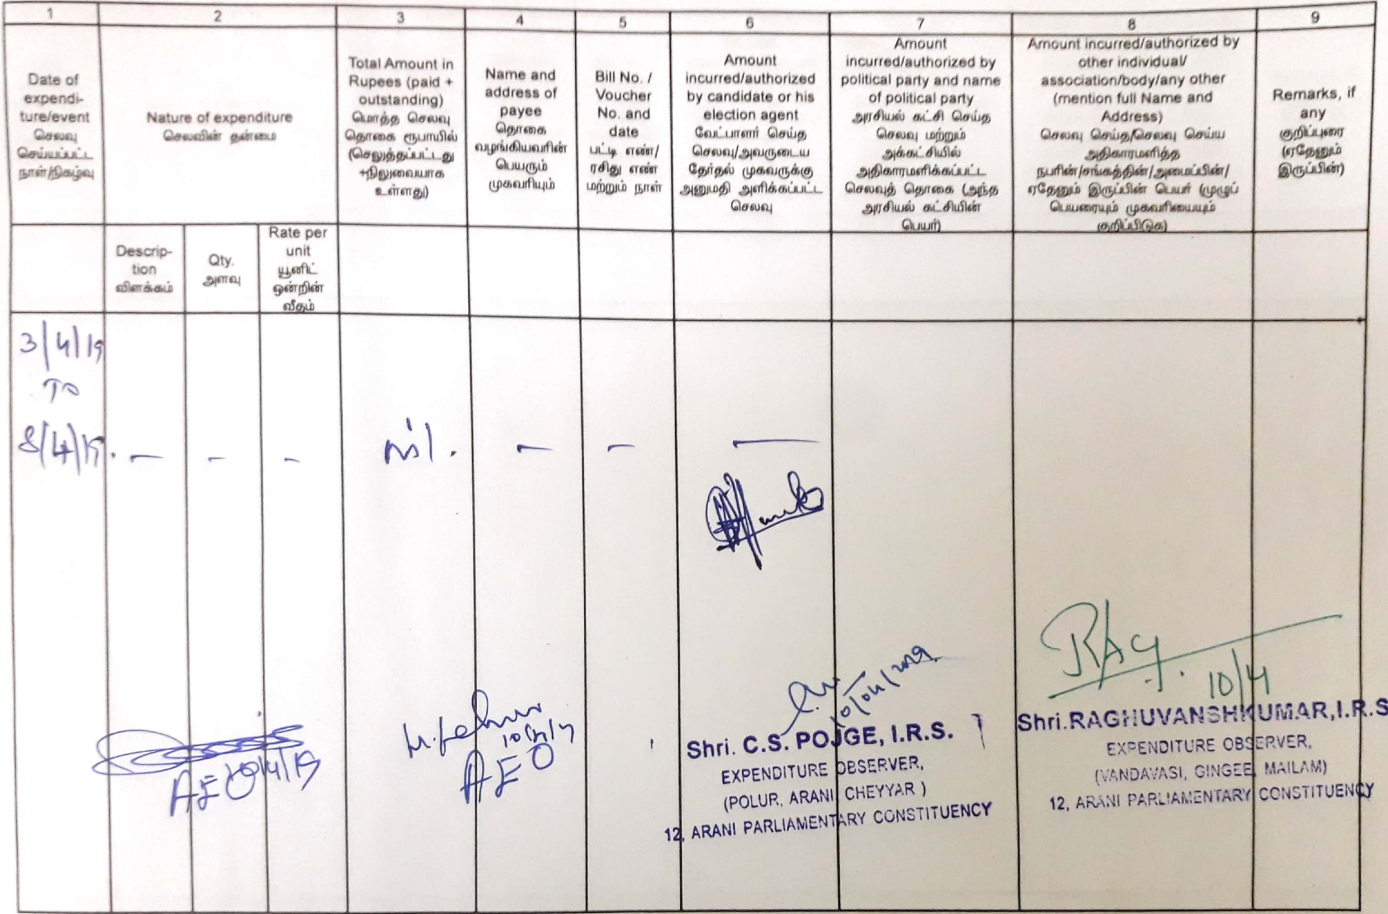 1 2 3 4 5 6 7 8 9
Date of
expendi-
ture/event
செலவு
செய்யப்பட்ட
நாள்/நிகழ்வு
Nature of expenditure
செலவின் தன்மை
Total Amount in
Rupees (paid +
outstanding)
மொத்த செலவு
தொகை ரூபாயில்
(செலுத்தப்பட்டது
+நிலுவையாக
உள்ளது)
Name and
address of
payee
தொகை
வழங்கியவரின்
பெயரும்
முகவரியும்
Bill No. /
Voucher
No. and
date
பட்டி எண்/
ரசிது எண்
மற்றும் நாள்
Amount
incurred/authorized
by candidate or his
election agent
வேட்பாளர் செய்த
செலவு/அவருடைய
தேர்தல் முகவருக்கு
அனுமதி அளிக்கப்பட்ட
செலவு
Amount
incurred/authorized by
political party and name
of political party
அரசியல் கட்சி செய்த
செலவு மற்றும்
அக்கட்சியில்
அதிகாரமளிக்கப்பட்ட
செலவுத் தொகை (அந்த
அரசியல் கட்சியின்
பெயர்)
Amount incurred/authorized by
other individual/
association/body/any other
(mention full Name and
Address)
செலவு செய்த/செலவு செய்ய
அதிகாரமளித்த
நபரின்/சங்கத்தின்/அமைப்பின்/
ஏதேனும் இருப்பின் பெயர் (முழுப்
பெயரையும் முகவரியையும்
குறிப்பிடுக)
Remarks, if
any
குறிப்புரை
(ஏதேனும்
இருப்பின்)
Descrip-
tion
விளக்கம்
Qty.
அளவு
Rate per
unit
யூனிட்
ஒன்றின்
வீதம்
3/4/19
TO
8/4/19. - - - Nil. - - -
10/04/2019
10/4
Shri. C.S. POJGE, I.R.S.
EXPENDITURE OBSERVER,
(POLUR, ARANI, CHEYYAR )
12, ARANI PARLIAMENTARY CONSTITUENCY
Shri.RAGHUVANSHKUMAR,I.R.S
EXPENDITURE OBSERVER,
(VANDAVASI, GINGEE, MAILAM)
12, ARANI PARLIAMENTARY CONSTITUENCY
AEO
AEO